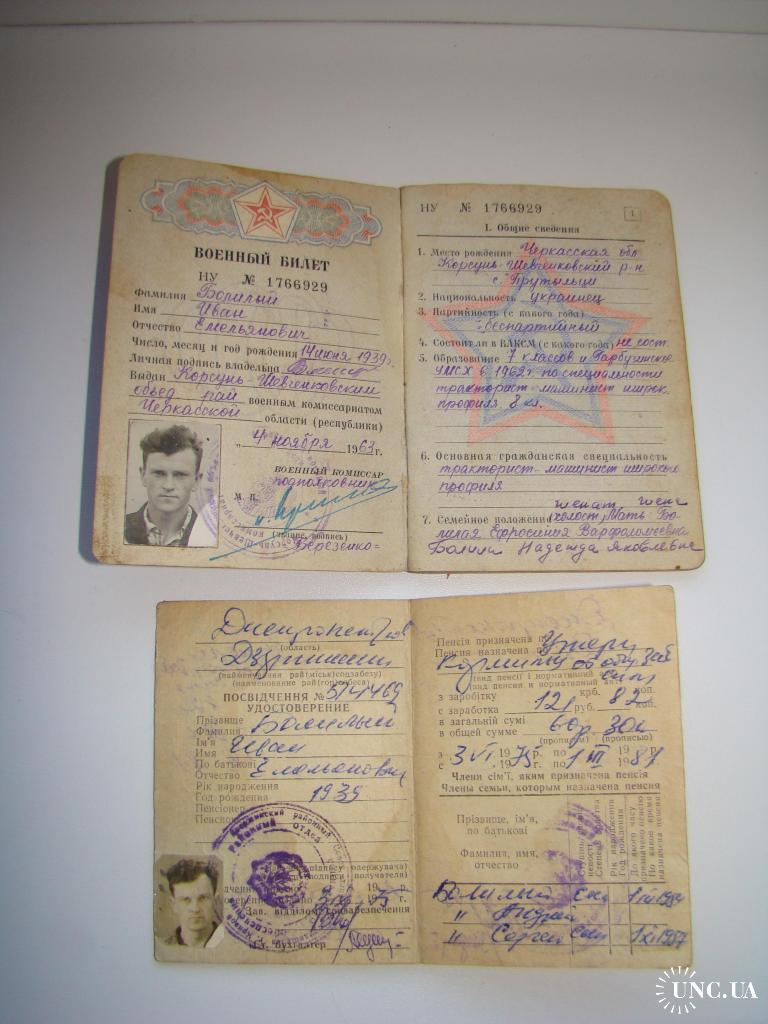 ВОЕННЫЙ БИЛЕТ
НУ № 1766929
Фамилия Болилый
Имя Иван
Отчество Емельянович
Число, месяц и год рождения 14 июня 1939 г.
Личная подпись владельца
Выдан Корсунь-Шевченковским
объед. рай военным комиссариатом
Черкасской области (республики)
„4 ноября 1963 г.
ВОЕННЫЙ КОМИССАР
подполковник
М. П.
(звание, подпись)
Березенко
НУ № 1766929
1
I. Общие сведения
1. Место рождения Черкасская обл
Корсунь-Шевченковский р-н
с.
2. Национальность украинец
3. Партийность (с какого года)
беспартийный
4. Состоял ли в ВЛКСМ (с какого года) не сост.
5. Образование 7 классов и
УМСХ в 1962 г. по специальности
тракторист-машинист широк.
профиля. 8 кл.
6. Основная гражданская специальность
тракторист-машинист широкого
профиля
женат
7. Семейное положение (холост, Мать-Бо-
лилая Ефросиния Варфоломеевна
Болила Надежда Яковлевна
(область)
(найменування рай(міськ)соцзабезу)
(наименование рай(гор)собеса)
ПОСВІДЧЕННЯ №
УДОСТОВЕРЕНИЕ
Прізвище
Фамилия Болилый
Ім'я
Имя Иван
По батькові
Отчество Емельянович
Рік народження
Год рождения 1939
Пенсионер
Зав. відділом соцзабезпечення
Гл. бухгалтер
Пенсія призначена по
Пенсия назначена по
(вид пенсії і нормативний
(вид пенсии и нормативный
з заробітку крб. коп.
с заработка 121 руб. 82 коп.
в загальній сумі
в общей сумме 60 р. 30 к
(прописом) (прописью)
з 3 VI 1975 р. по 1 19 р.
с г. по 1981 г.
Члени сім'ї, яким призначена пенсія
Члены семьи, которым назначена пенсия
Прізвище, ім'я,
по батькові
Фамилия, имя,
отчество
Рік народження
Год рождения
До якого часу
призначено пенсію
По какое время
назначена пенсия
Болилый Сын
" Андрей
" Сергей Сын
UNC.UA